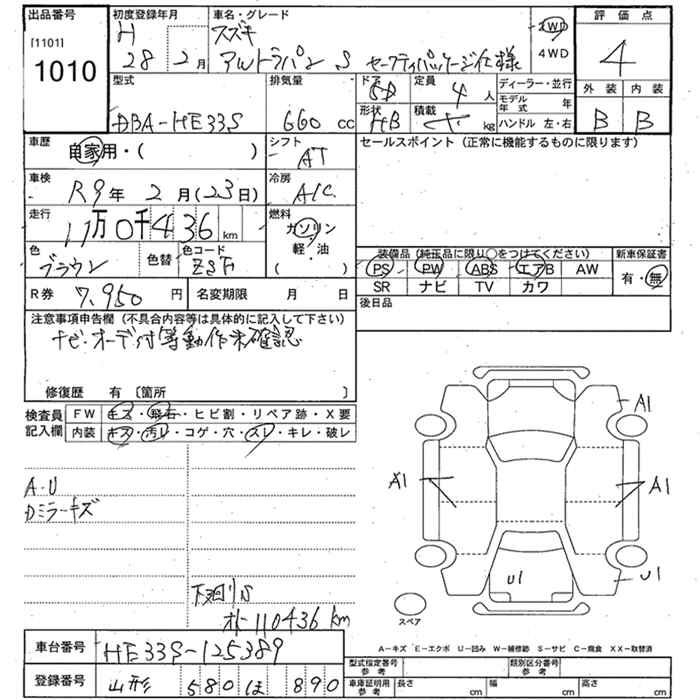 出品番号
[1101]
1010
初度登録年月
H
28 2月
車名・グレード
スズキ
アルトラパン S セーフティパッケージ仕様
2WD
4WD
評価点
4
外装 内装
B B
型式
DBA-HE33S
排気量
660cc
ドア
5D
定員
4人
形状
HB
積載
kg
ディーラー・並行
モデル年式 年
ハンドル 左・右
車歴
自家用・( )
シフト
AT
セールスポイント (正常に機能するものに限ります)
車検
R9年 2月(23日)
冷房
A/C
走行
11万0千436km
燃料
ガソリン
軽・油
( )
色
ブラウン
色替
色コード
装備品 (純正品に限り○をつけてください)
新車保証書
PS PW ABS エアB AW
有・無
SR ナビ TV カワ
R券
7,950円
名変期限 月 日
後日品
注意事項申告欄 (不具合内容等は具体的に記入して下さい)
ナビ・オーディオ等動作未確認
修復歴 有 〔箇所 〕
検査員
記入欄
FW キズ・飛石・ヒビ割・リペア跡・X要
内装 キズ・汚レ・コゲ・穴・スレ・キレ・破レ
A・U
Dミラーキズ
下廻りS
オド110436km
A1
A1
A1
U1
U1
スペア
A-キズ E-エクボ U-凹み W-補修跡 S-サビ C-腐食 XX-取替済
車台番号
HE33S-125389
登録番号
山形 580 ほ 890
型式指定番号
参考
類別区分番号
参考
車庫証明用
参考
長さ cm
幅 cm
高さ cm